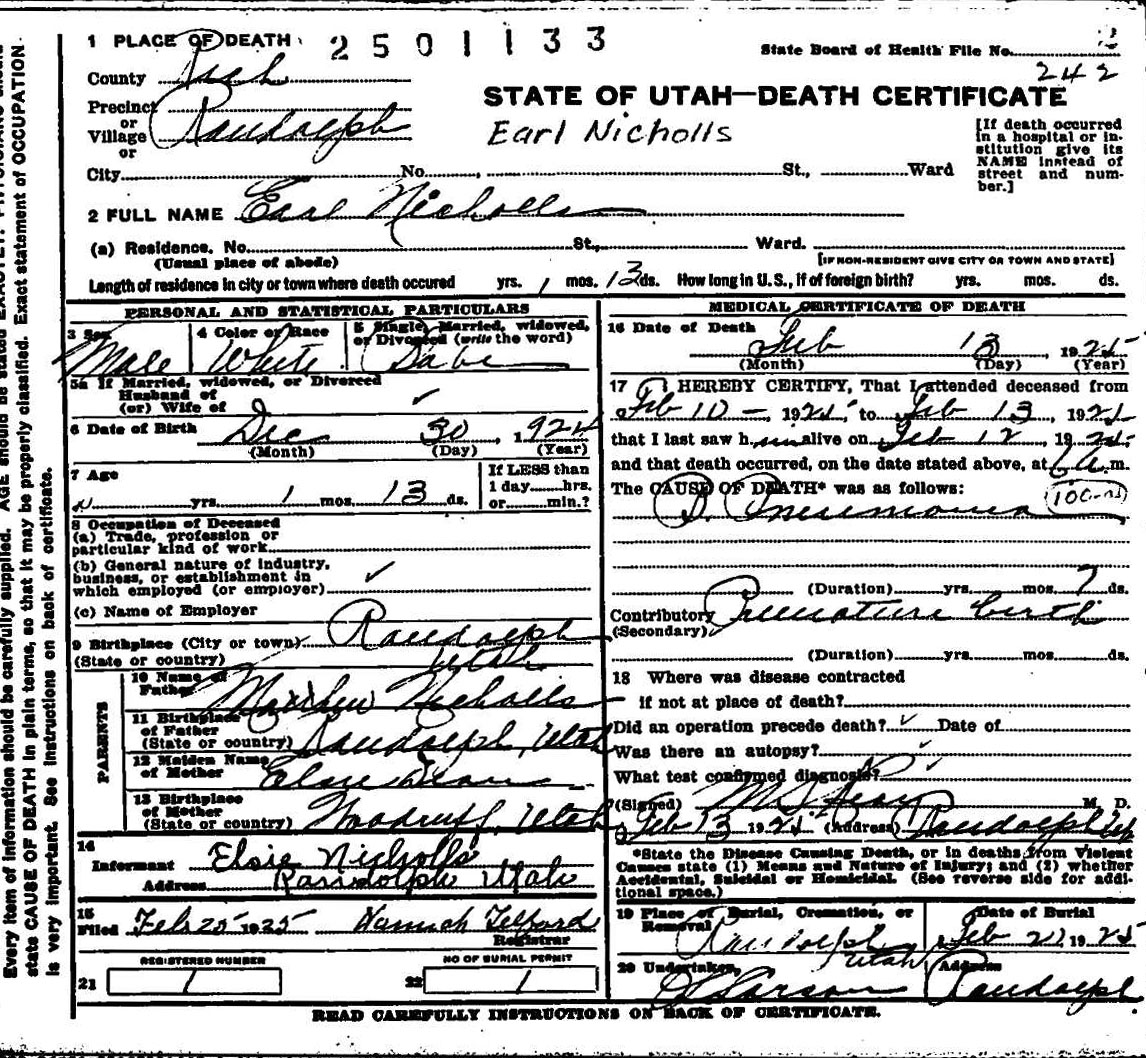 1 PLACE OF DEATH 2501133 State Board of Health File No. 2
County Rich 242
STATE OF UTAH—DEATH CERTIFICATE
Precinct
or
Village Randolph Earl Nicholls
or
[If death occurred in a hospital or institution give its NAME instead of street and number.]
City No. St., Ward
2 FULL NAME Earl Nicholls
(a) Residence. No. St., Ward.
(Usual place of abode) [IF NON-RESIDENT GIVE CITY OR TOWN AND STATE]
Length of residence in city or town where death occured yrs. 1 mos. 13 ds. How long in U.S., if of foreign birth? yrs. mos. ds.
PERSONAL AND STATISTICAL PARTICULARS
3 Sex 4 Color or Race 5 Single, Married, widowed,
or Divorced (write the word)
Male White Babe
5a If Married, widowed, or Divorced
Husband of
(or) Wife of ✓
6 Date of Birth Dec 30, 1924
(Month) (Day) (Year)
7 Age If LESS than
1 day hrs.
yrs. 1 mos. 13 ds. or min.?
8 Occupation of Deceased
(a) Trade, profession or
particular kind of work
(b) General nature of industry,
business, or establishment in
which employed (or employer) ✓
(c) Name of Employer
9 Birthplace (City or town) Randolph
(State or country) Utah
PARENTS
10 Name of
Father Matthew Nicholls
11 Birthplace
of Father
(State or country) Randolph, Utah
12 Maiden Name
of Mother Elsie
13 Birthplace
of Mother
(State or country) Woodruff, Utah
14
Informant Elsie Nicholls
Address Randolph Utah
15
Filed Feb 25 1925 Hannah Telford
Registrar
REGISTERED NUMBER NO OF BURIAL PERMIT
21 1 22 1
MEDICAL CERTIFICATE OF DEATH
16 Date of Death Feb 13, 1925
(Month) (Day) (Year)
17 I HEREBY CERTIFY, That I attended deceased from
Feb 10 – 1925 to Feb 13, 1925
that I last saw h im alive on Feb 12, 1925
and that death occurred, on the date stated above, at 6 a.m.
The CAUSE OF DEATH* was as follows:
Pneumonia
(Duration) yrs. mos. 7 ds.
Contributory Premature birth
(Secondary)
(Duration) yrs. mos. ds.
18 Where was disease contracted
if not at place of death?
Did an operation precede death? ✓ Date of
Was there an autopsy? ✓
What test confirmed diagnosis? ✓
(Signed) M. D.
Feb 13 1925 (Address) Randolph
*State the Disease Causing Death, or in deaths from Violent
Causes state (1) Means and Nature of Injury; and (2) whether
Accidental, Suicidal or Homicidal. (See reverse side for addi-
tional space.)
19 Place of Burial, Cremation, or Date of Burial
Removal
Randolph Utah Feb 1925
20 Undertaker, Address
Larson Randolph
READ CAREFULLY INSTRUCTIONS ON BACK OF CERTIFICATE.
Every item of information should be carefully supplied. AGE should be stated EXACTLY. PHYSICIANS should
state CAUSE OF DEATH in plain terms, so that it may be properly classified. Exact statement of OCCUPATION
is very important. See instructions on back of certificate.